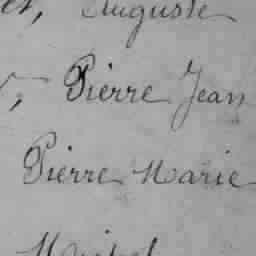 Auguste
Pierre Jean
Pierre Marie